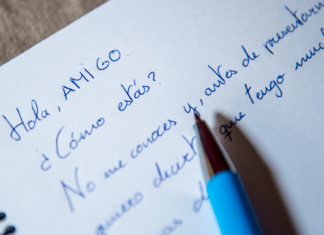 Hola, AMIGO.
¿Cómo estás?
No me conoces y, antes de presentarm
quiero decirt que tengo much